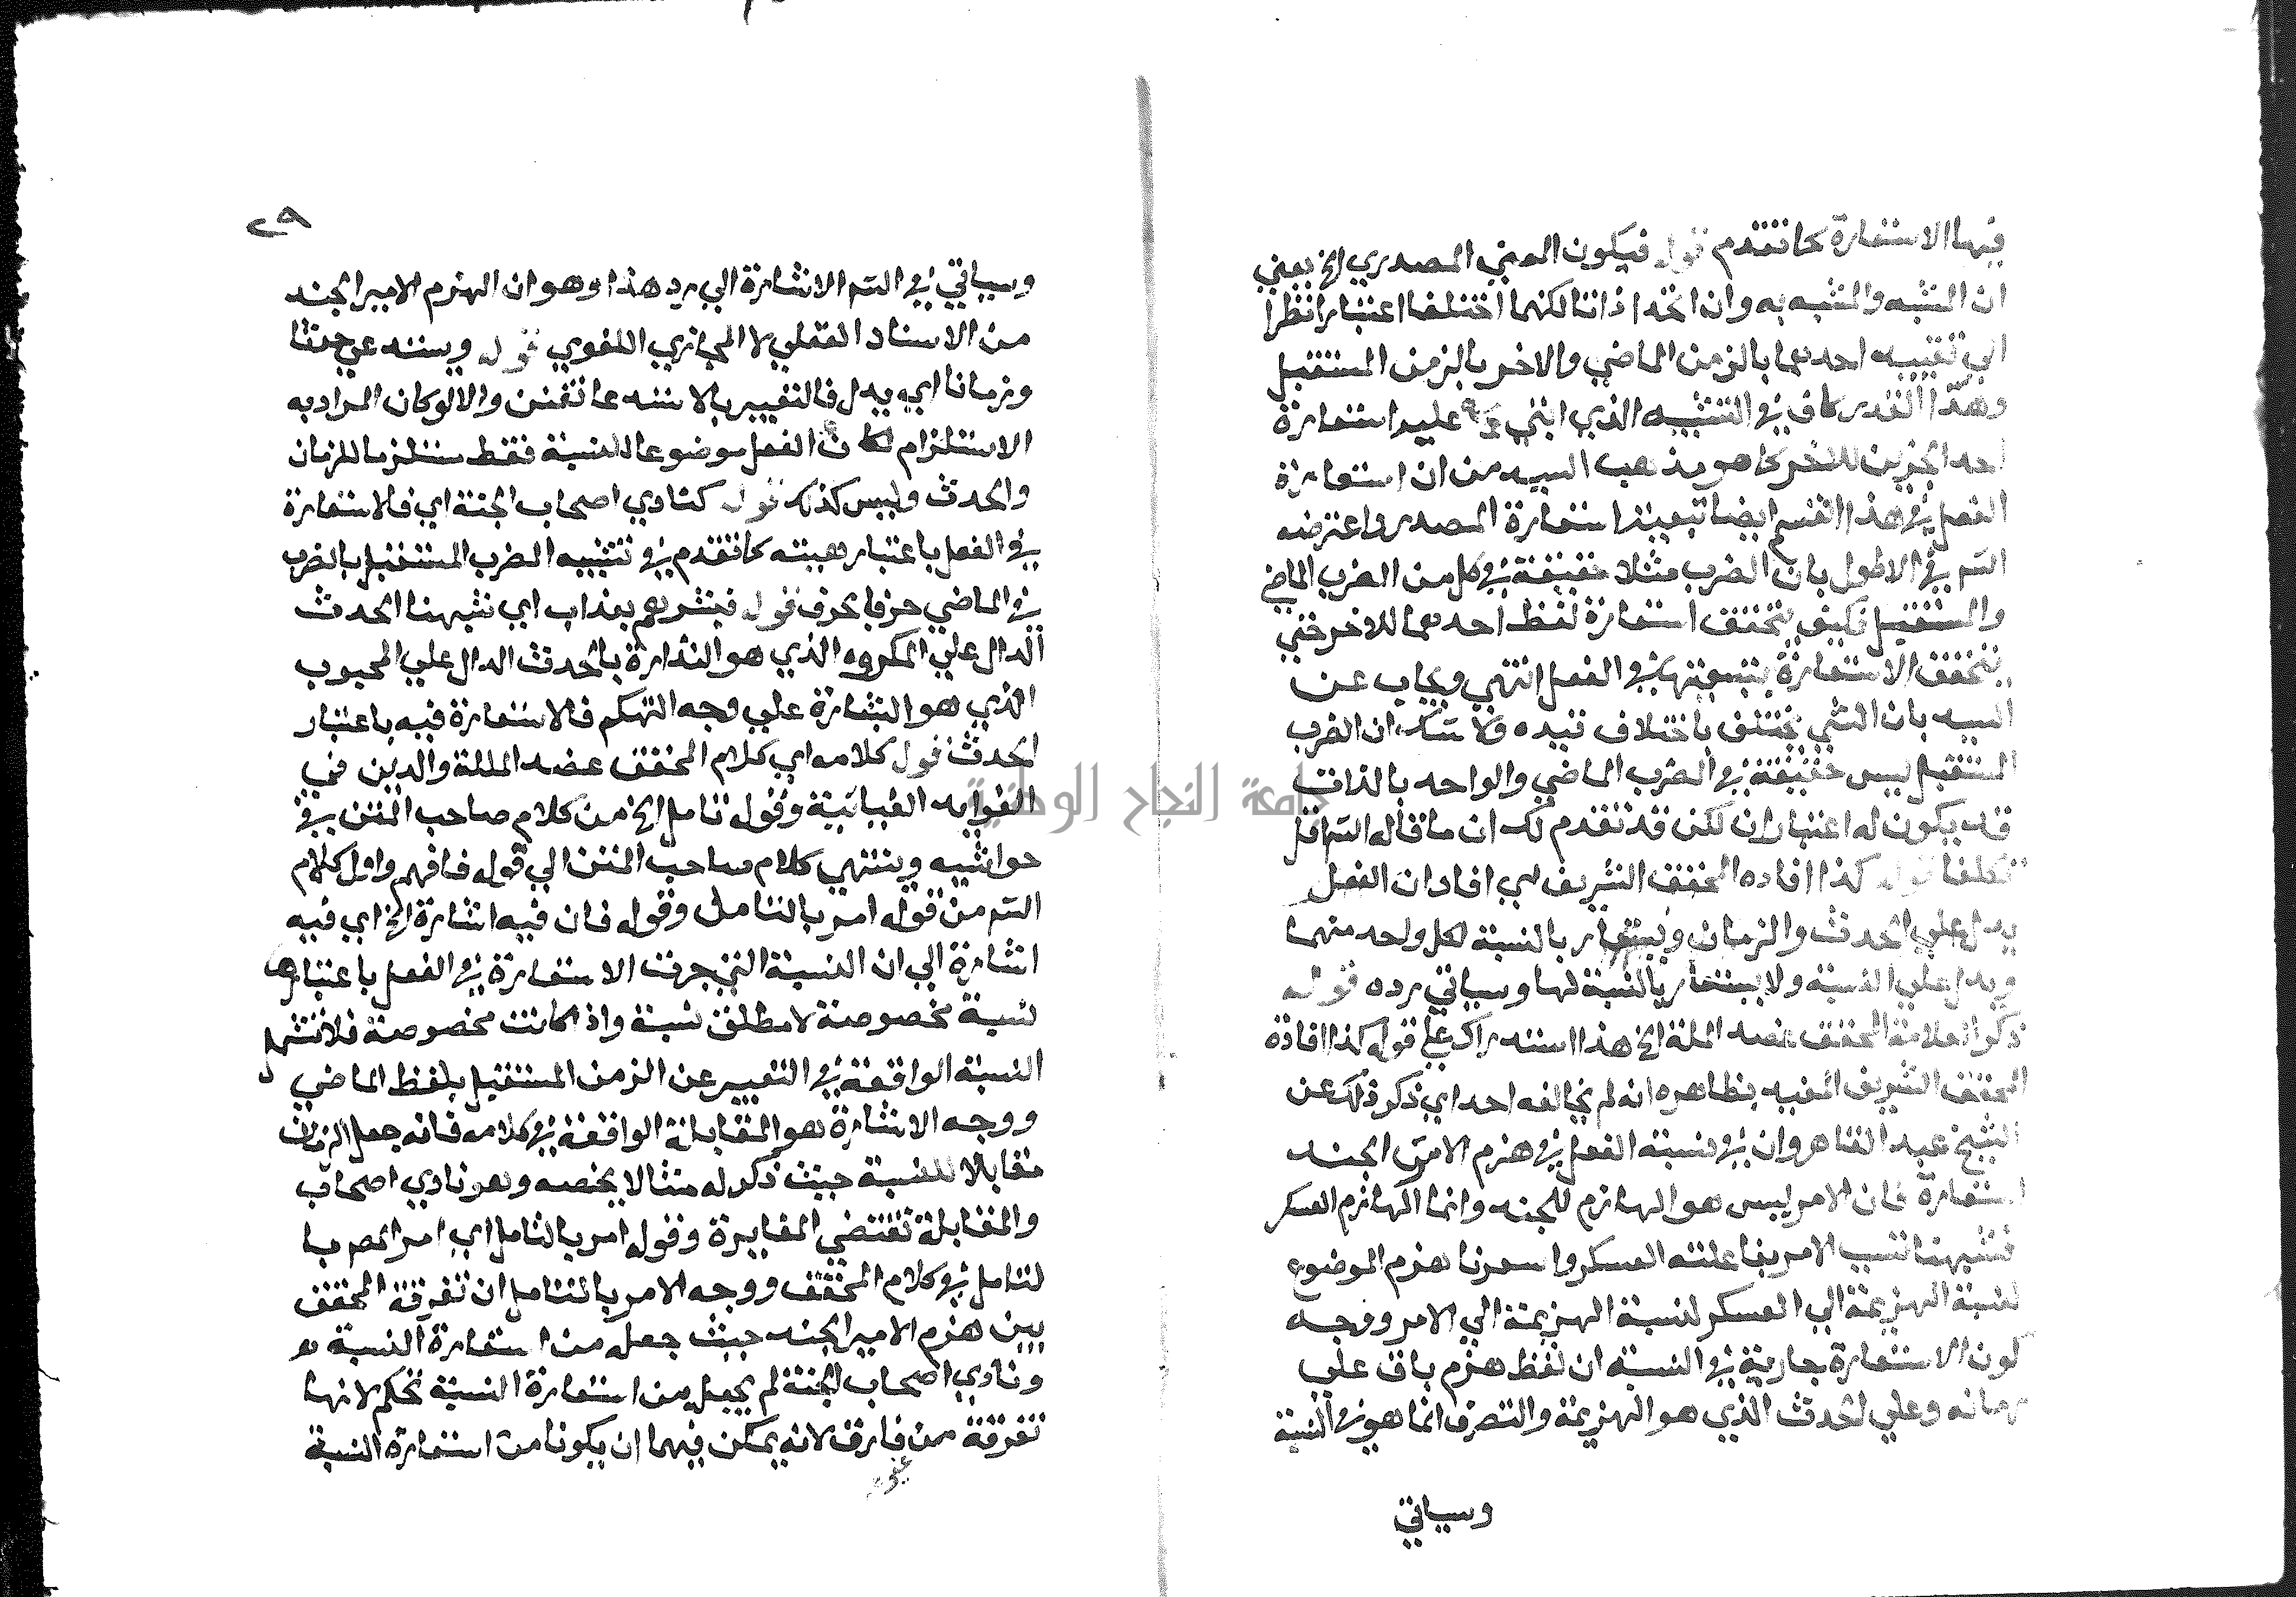 فيها الاستعارة كما تقدم قوله فيكون المعني المصدري الخ يعني
ان المشبه والمشبه به وان اتحدا ذاتا لكنهما اختلفا اعتبارا نظرا
الي تقييد احدهما بالزمن الماضي والاخر بالزمن المستقبل
وهذا القدر كاف في التشبيه الذي ابتني عليه استعارة
احد الجزين للاخر كما هو مذهب السيد من ان استعارة
الفعل في هذا القسم ايضا تبعية لاستعارة المصدر واعترضه
الشه في الاطول بان الضرب مثلا حقيقة في كل من الضرب الماضي
والمستقبل فكيف يتحقق استعارة لفظ احدهما للاخر حتي
تتحقق الاستعارة بتبعيتها في الفعل انتهي ويجاب عن
السيد بان الشي يختلف باختلاف قيده ولا شك ان الضرب
المستقبل ليس حقيقة في الضرب الماضي والواحد بالذات
قد يكون له اعتباران لكن قد تقدم لك ان ما قاله الشه اقل
تكلفا قوله كذا افاده المحقق الشريف اي افاد ان الفعل
يدل علي الحدث والزمان ويستعار بالنسبة لكل واحد منهما
ويدل علي النسبة ولا يستعار بالنسبة لها وسياتي رده قوله
ذكر العلامة المحقق عضد الملة الخ هذا استدراك علي قوله كذا افاده
المحقق الشريف المفيد بظاهره انه لم يخالفه احد اي ذكر ذلك عن
الشيخ عبد القاهر وان في نسبة الفعل في هزم الامير الجند
استعارة فان الامير ليس هو الهازم للجند وانما الهازم العسكر
فشبهنا تسبب الامير بفاعلية العسكر واستعرنا هزم الموضوع
لنسبة الهزيمة الي العسكر لنسبة الهزيمة الي الامير ووجه
كون الاستعارة جارية في النسبة ان لفظ هزم باق علي
زمانه وعلي الحدث الذي هو الهزيمة والتصرف انما هو في النسبة
وسياتي
٢٩
وسياتي في الشه الاشارة الي رد هذا وهو ان الهزم الامير الجند
من الاسناد العقلي لا المجازي اللغوي قوله ويستدعي حدثا
وزمانا اي يدل فالتعبير بالاستدعا تفنن والا لو كان المراد به
الاستلزام لكان الفعل موضوعا للنسبة فقط مستلزما للزمان
والحدث وليس كذلك قوله كنادي اصحاب الجنة اي فالاستعارة
في الفعل باعتبار هيئته كما تقدم في تشبيه الضرب المستقبل بالضرب
في الماضي حرفا بحرف قوله فبشرهم بعذاب اي شبهنا الحدث
الدال علي المكروه الذي هو النذارة بالحدث الدال علي المحبوب
الذي هو البشارة علي وجه التهكم فالاستعارة فيه باعتبار
الحدث قوله كلامه اي كلام المحقق عضد الملة والدين في
الفوايد الغياثية وقوله تامل الخ من كلام صاحب المتن في
حواشيه وينتهي كلام صاحب المتن الي قوله فافهم واول كلام
الشه من قوله امر بالتامل وقوله فان فيه اشارة الخ اي فيه
اشارة الي ان النسبة التي جرت الاستعارة في الفعل باعتبارها
نسبة مخصوصة لا مطلق نسبة واذا كانت مخصوصة فلا تشمل
النسبة الواقعة في التعبير عن الزمن المستقبل بلفظ الماضي
ووجه الاشارة هو المقابلة الواقعة في كلامه فانه جعل الزمان
مقابلا للنسبة حيث ذكر له مثالا يخصه وهو نادي اصحاب
والمقابلة تقتضي المغايرة وقوله امر بالتامل اي امر المص با
لتامل في كلام المحقق ووجه الامر بالتامل ان تفرقة المحقق
بين هزم الامير الجند حيث جعل من استعارة النسبة و
ونادي اصحاب الجنة لم يجعل من استعارة النسبة تحكم لانها
تفرقة من فارق لانه يمكن فيهما ان يكونا من استعارة النسبة
جامعة النجاح الوطنية